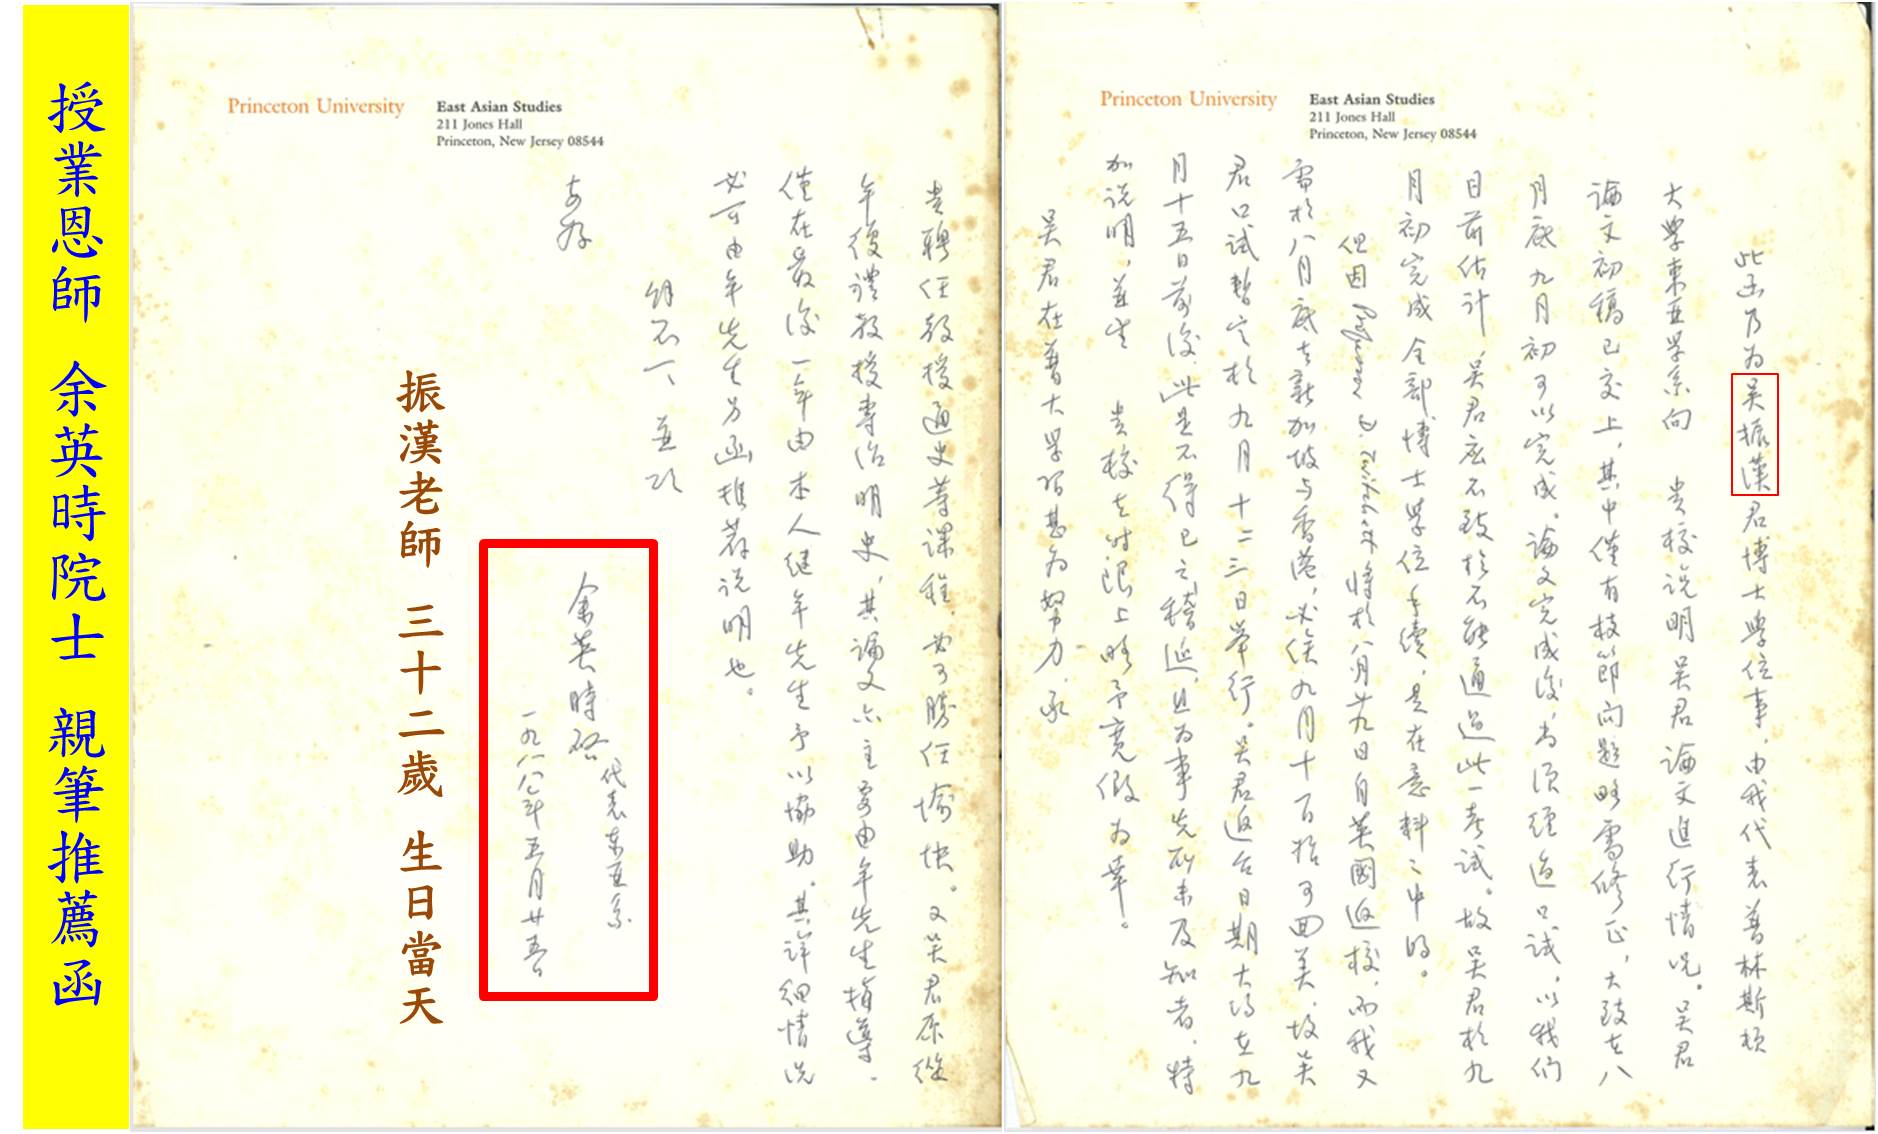 授業恩師 余英時院士 親筆推薦函
Princeton University
East Asian Studies
211 Jones Hall
Princeton, New Jersey 08544
此函乃為吳振漢君博士學位事，由我代表普林斯頓
大學東亞學系向 貴校說明吳君論文進行情況。吳君
論文初稿已交上，其中僅有枝節問題略需修正，大致在八
月底九月初可以完成。論文完成後，尚須經過口試，以我們
目前估計，吳君應不致於不能通過此一考試。故吳君於九
月初完成全部博士學位手續，是在意料之中的。
但因 Professor D. Twitchett 將於八月廿九日自英國返校，而我又
需於八月底去新加坡与香港，必俟九月十一日始可回美，故吳
君口試暫定於九月十二三日舉行。吳君返台日期大約在九
月十五日前後，此是不得已之稽延，且為事先所未及知者，特
加說明，並望 貴校在時限上略予寬假為幸。
吳君在普大學習甚為努力，承
Princeton University
East Asian Studies
211 Jones Hall
Princeton, New Jersey 08544
貴聘任教授通史等課程，必可勝任愉快。又吳君原從
牟復禮教授專治明史，其論文亦主要由牟先生指導，
僅在最後一年由本人繼牟先生予以協助。其詳細情況
必可由牟先生另函推荐說明也。
餘不一一，並頌
安好
余英時啟
代表東亞系
一九八八年五月廿五日
振漢老師 三十二歲 生日當天